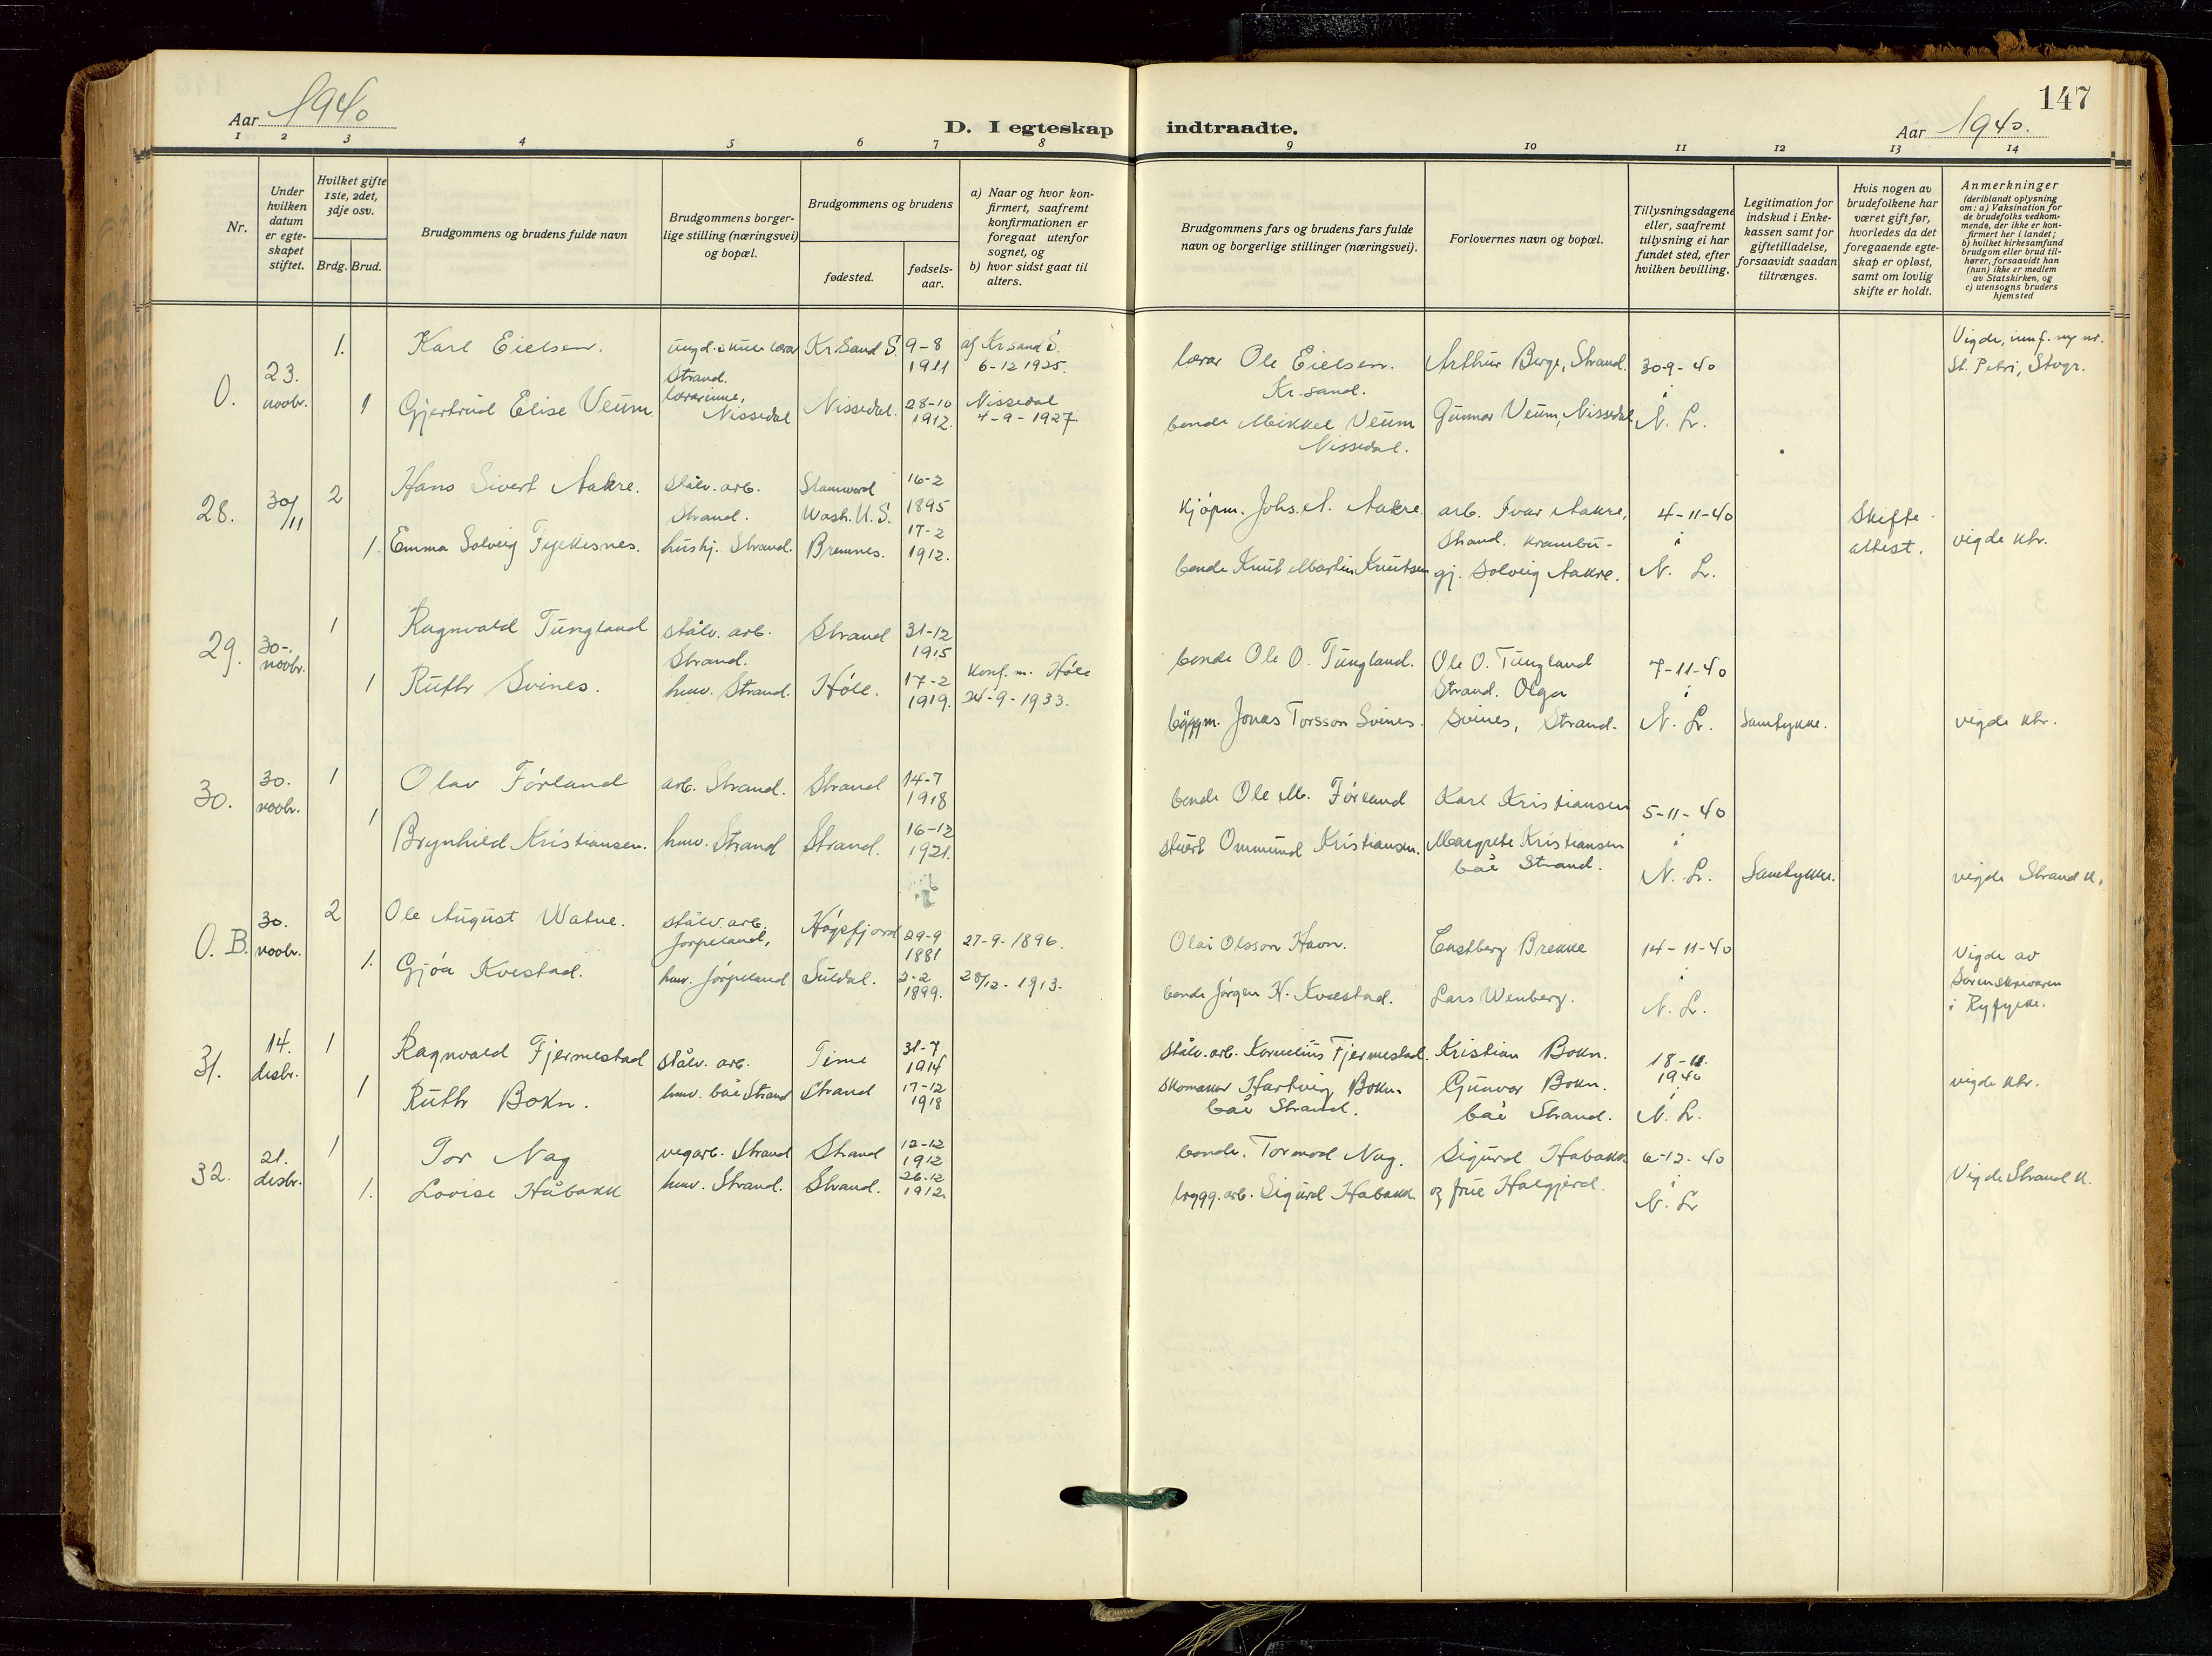 147
Aar 1940
D. I egteskap indtraadte.
Aar 1940.
1 2 3 4 5 6 7 8 9 10 11 12 13 14
Nr.
Under
hvilken
datum
er egte-
skapet
stiftet.
Hvilket gifte
1ste, 2det,
3dje osv.
Brdg. Brud.
Brudgommens og brudens fulde navn
Brudgommens borger-
lige stilling (næringsvei)
og bopæl.
Brudgommens og brudens
fødested.
fødsels-
aar.
a) Naar og hvor kon-
firmert, saafremt
konfirmationen er
foregaat utenfor
sognet, og
b) hvor sidst gaat til
alters.
Brudgommens fars og brudens fars fulde
navn og borgerlige stillinger (næringsvei).
Forlovernes navn og bopæl.
Tillysningsdagene
eller, saafremt
tillysning ei har
fundet sted, efter
hvilken bevilling.
Legitimation for
indskud i Enke-
kassen samt for
giftetilladelse,
forsaavidt saadan
tiltrænges.
Hvis nogen av
brudefolkene har
været gift før,
hvorledes da det
foregaaende egte-
skap er opløst,
samt om lovlig
skifte er holdt.
Anmerkninger
(deriblandt oplysning
om: a) Vaksination for
de brudefolks vedkom-
mende, der ikke er kon-
firmert her i landet;
b) hvilket kirkesamfund
brudgom eller brud til-
hører, forsaavidt han
(hun) ikke er medlem
av Statskirken, og
c) utensogns bruders
hjemsted
O.
23.
novbr.
1.
Karl Eielsen.
ungd.skule lærar
Strand.
Kr.Sand S.
9-8
1911
af Kr.sand S.
6-12 1925.
lærar Ole Eielsen.
Kr.sand.
Arthur Berge, Strand.
30-9-40
i
N. L.
Vigde, innf. ny nr.
St. Petri, Stvgr.
1
Gjertrud Elise Veum
lærarinne,
Nissedal
Nissedal.
28-10
1912.
Nissedal
4-9-1927
bonde Mikkel Veum
Nissedal.
Gunnar Veum, Nissedal
28.
30/11
2
Hans Sivert Aakre.
stålv. arb.
Strand.
Stanwood
Wash. U.S.
16-2
1895
kjøpm. Johs. A. Aakre.
arb. Ivar Aakre,
Strand. krambu-
4-11-40
i
N. L.
Skifte-
attest.
vigde khr.
1.
Emma Solveig Fyeksnes.
hushj. Strand.
Bremnes.
17-2
1912.
bonde Knut Martin Knutsen
gj. Solveig Aakre.
29.
30-.
novbr.
1
Ragnvald Tungland
stålv. arb.
Strand.
Strand
31-12
1915
bonde Ole O. Tungland.
Ole O. Tungland
Strand. Olga
7-11-40
i
N. L.
1
Ruth Svines.
huv. Strand.
Høle.
17-2
1919.
konf. m. Høle
24-9-1933.
byggm. Jonas Torsson Svines.
Svines, Strand.
Samtykke.
vigde khr.
30.
30.
novbr.
1
Olav Førland
arb. Strand.
Strand
14-7
1918
bonde Ole M. Førland
Karl Kristiansen
5-11-40
i
N. L.
1
Brynhild Kristiansen.
huv. Strand
Strand.
16-12
1921.
stuert Ommund Kristiansen.
Margrete Kristiansen
båe Strand.
Samtykke.
vigde Strand k.
O. B.
30.
novbr.
2
Ole August Watne.
stålv. arb.
Jørpeland,
Høgsfjord
29-9
1881
27-9-1896.
Olai Olsson Havn.
Engelberg Brekke
14-11-40
i
N. L.
Vigde av
Sorenskrivaren
i Ryfylke.
1.
Gjøa Kvestad.
huv. Jørpeland
Suldal.
2-2
1899.
28/12-1913.
bonde Jørgen H. Kvæstad.
Lars Wenberg.
31.
14.
desbr.
1
Ragnvald Fjermestad
stålv. arb.
Time
31-7
1914
stålv. arb. Kornelius Fjermestad.
Kristian Bokn.
18-11.
1940
i
N. L.
1
Ruth Bokn.
huv. båe Strand
Strand
17-12
1918
skomaker Hartvig Bokn.
båe Strand.
Gunvor Bokn.
båe Strand.
vigde khr.
32.
21.
desbr.
1
Tor Nag
vegarb. Strand
Strand
12-12
1912
bonde. Tormod Nag.
Sigurd Håbakk
6-12-40
i
N. L
Vigde Strand k.
1.
Lovise Håbakk
huv. Strand.
Strand.
26-12
1912
brygg. arb. Sigurd Håbakk.
og frue Halgjerd.